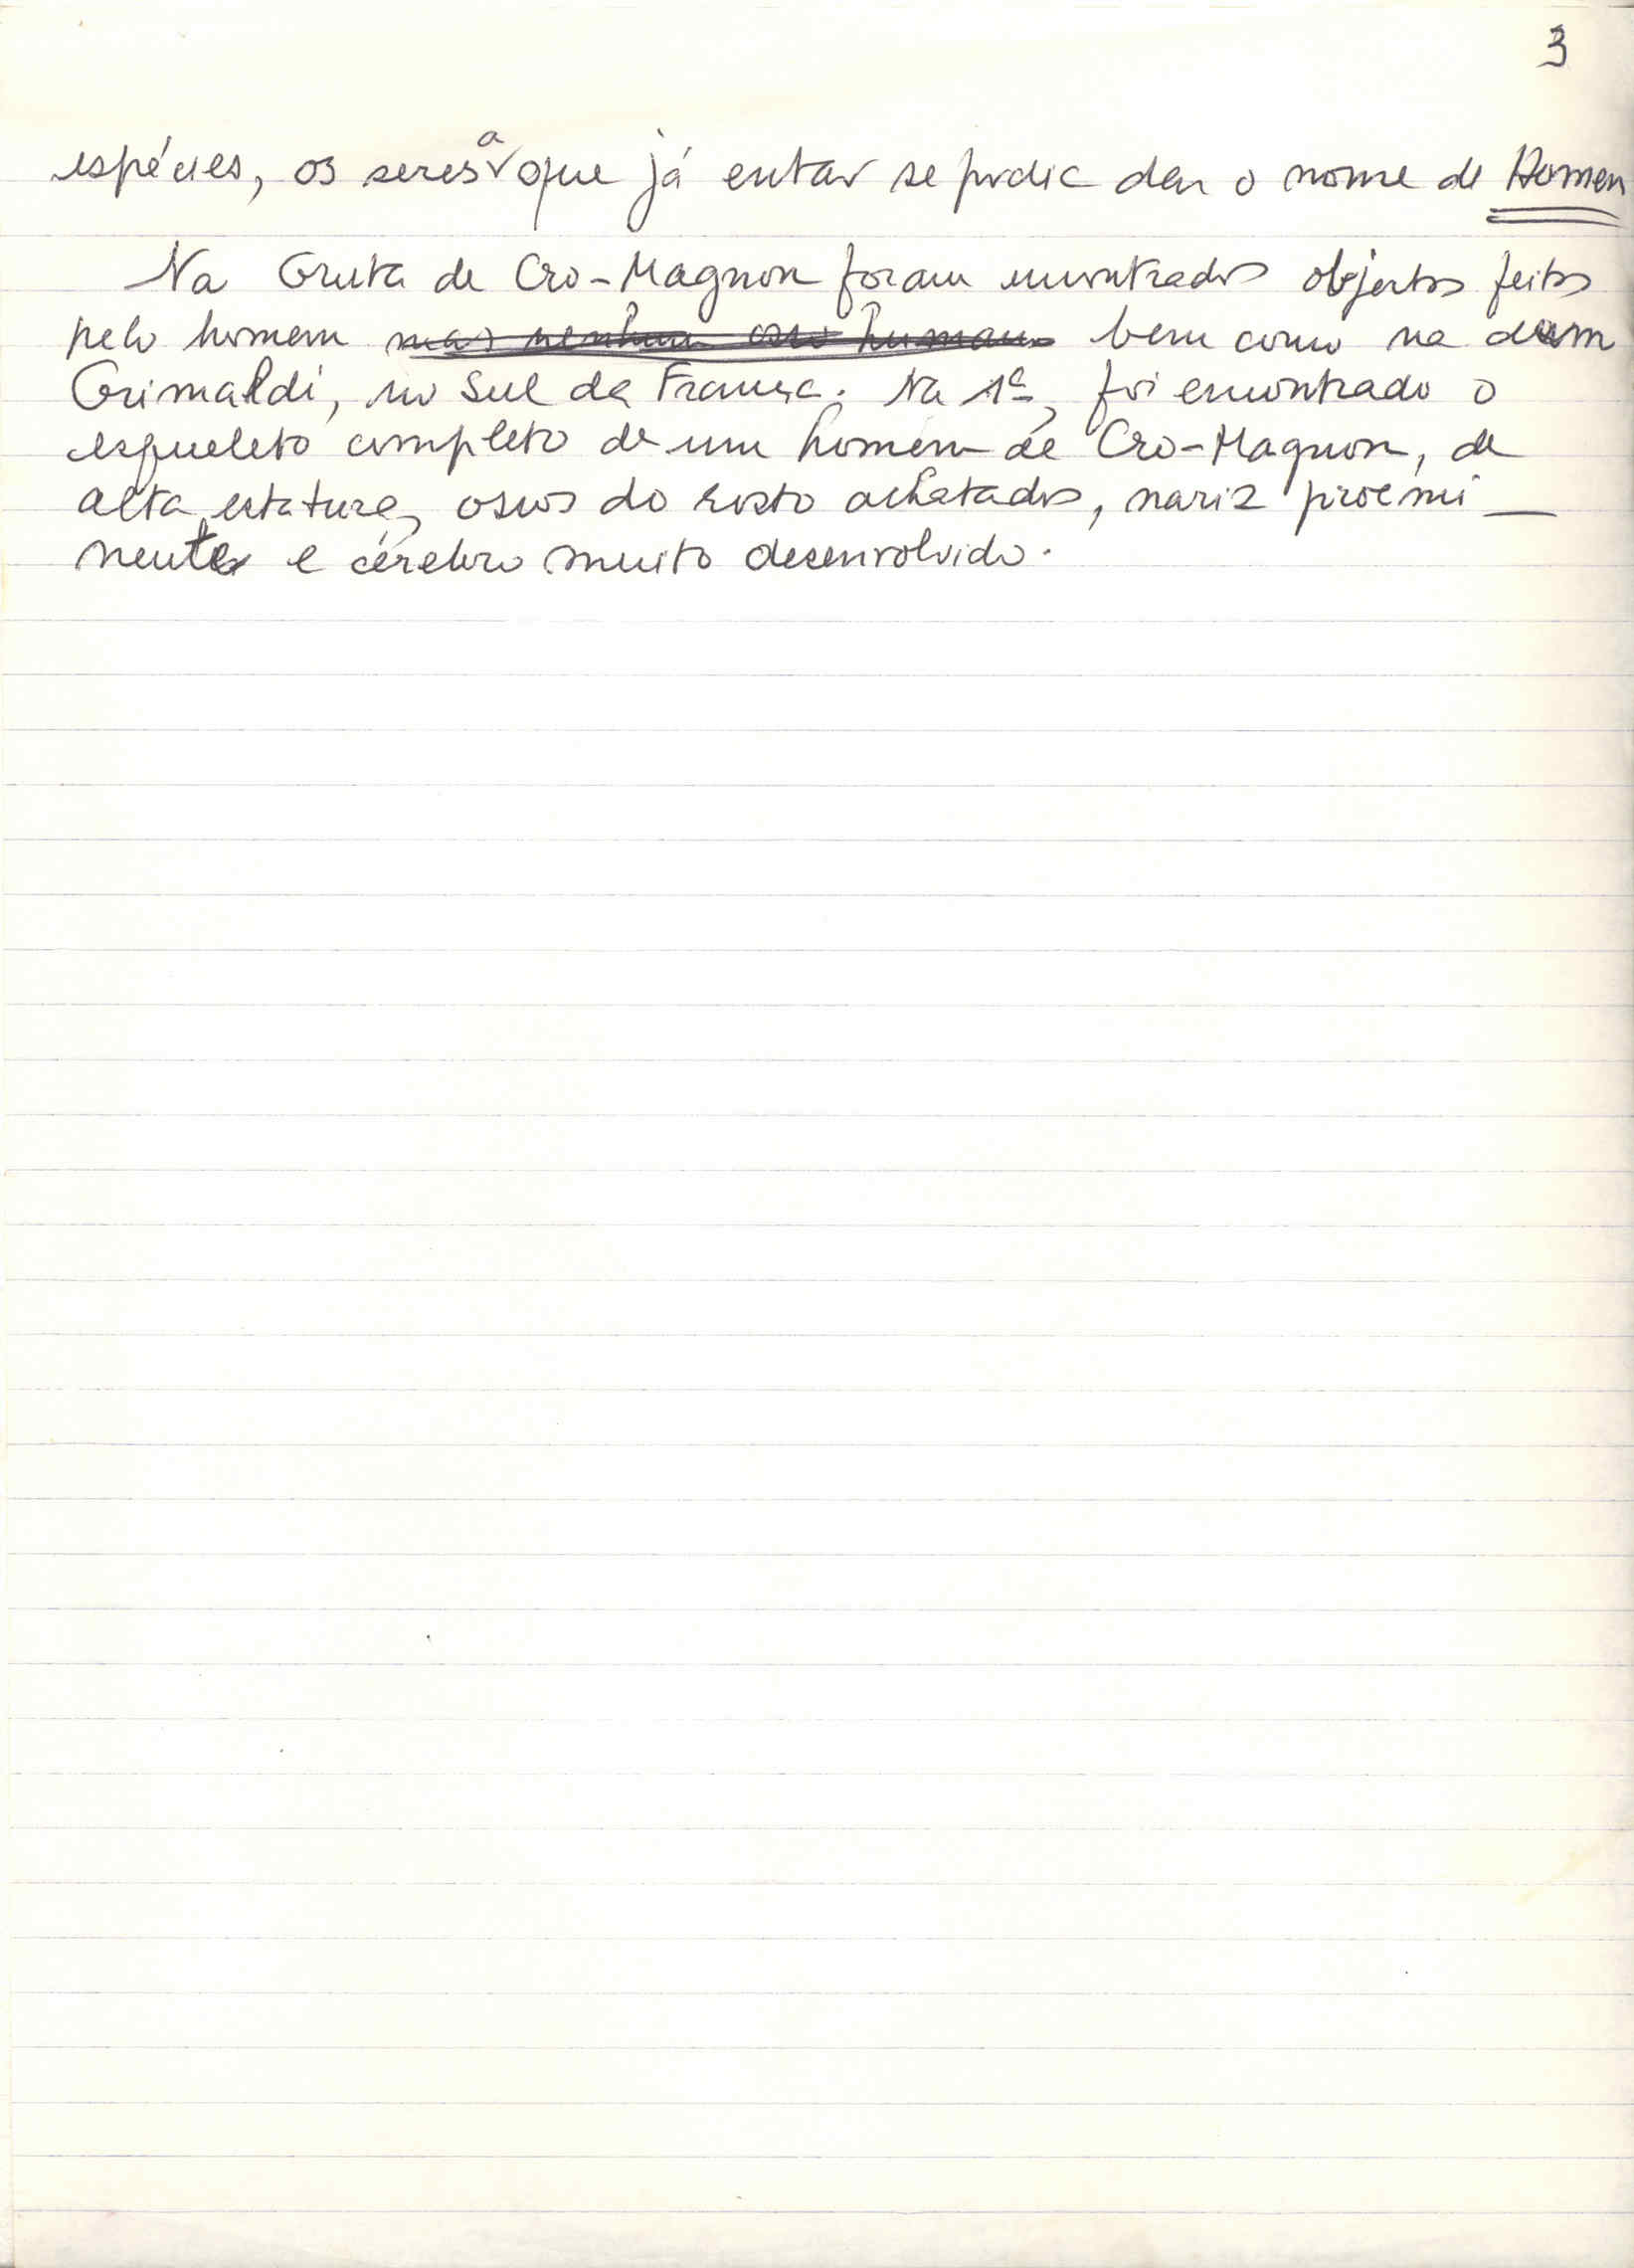 3
espécies, os seres a que já então se podia dar o nome de Homem
Na Gruta de Cro-Magnon foram encontrados objectos feitos
pelo homem mas nenhum osso humano bem como na dum
Grimaldi, no Sul da França. Na 1ª, foi encontrado o
esqueleto completo de um homem de Cro-Magnon, de
alta estatura, ossos do rosto achatados, nariz proemi_
nente e cérebro muito desenvolvido.